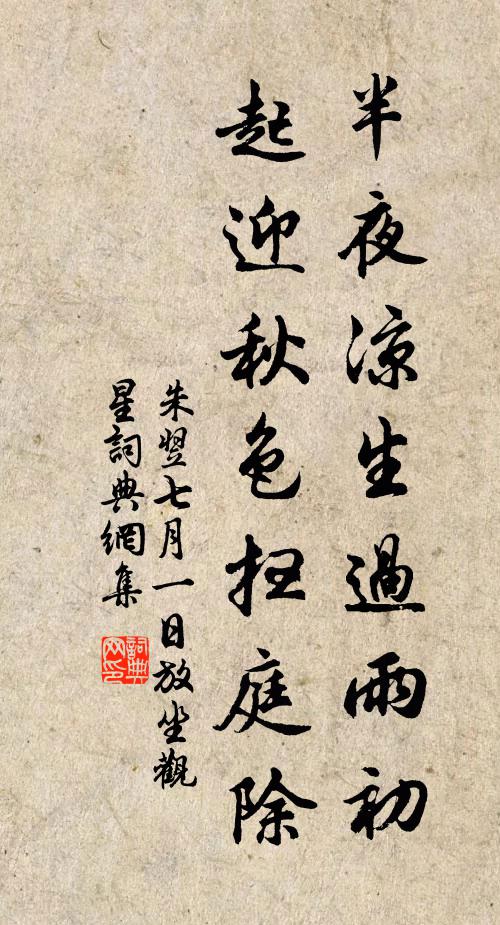 半夜凉生過雨初
起迎秋色扫庭除
朱翌七月一日放坐觀
星詞典網集
詞典网印